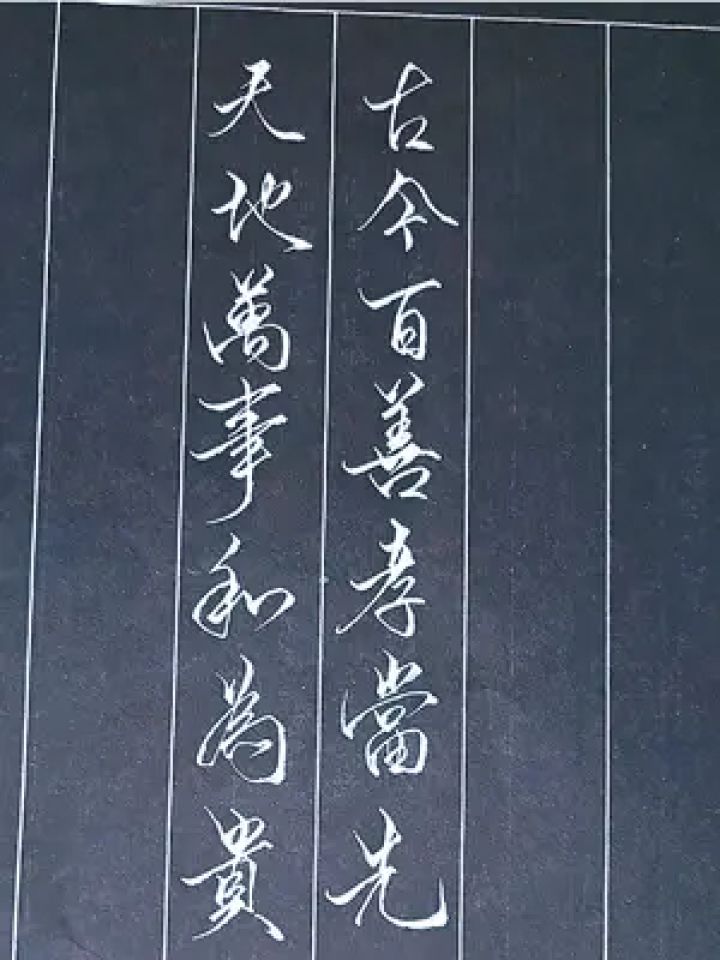 古今百善孝當先
天地萬事和為貴